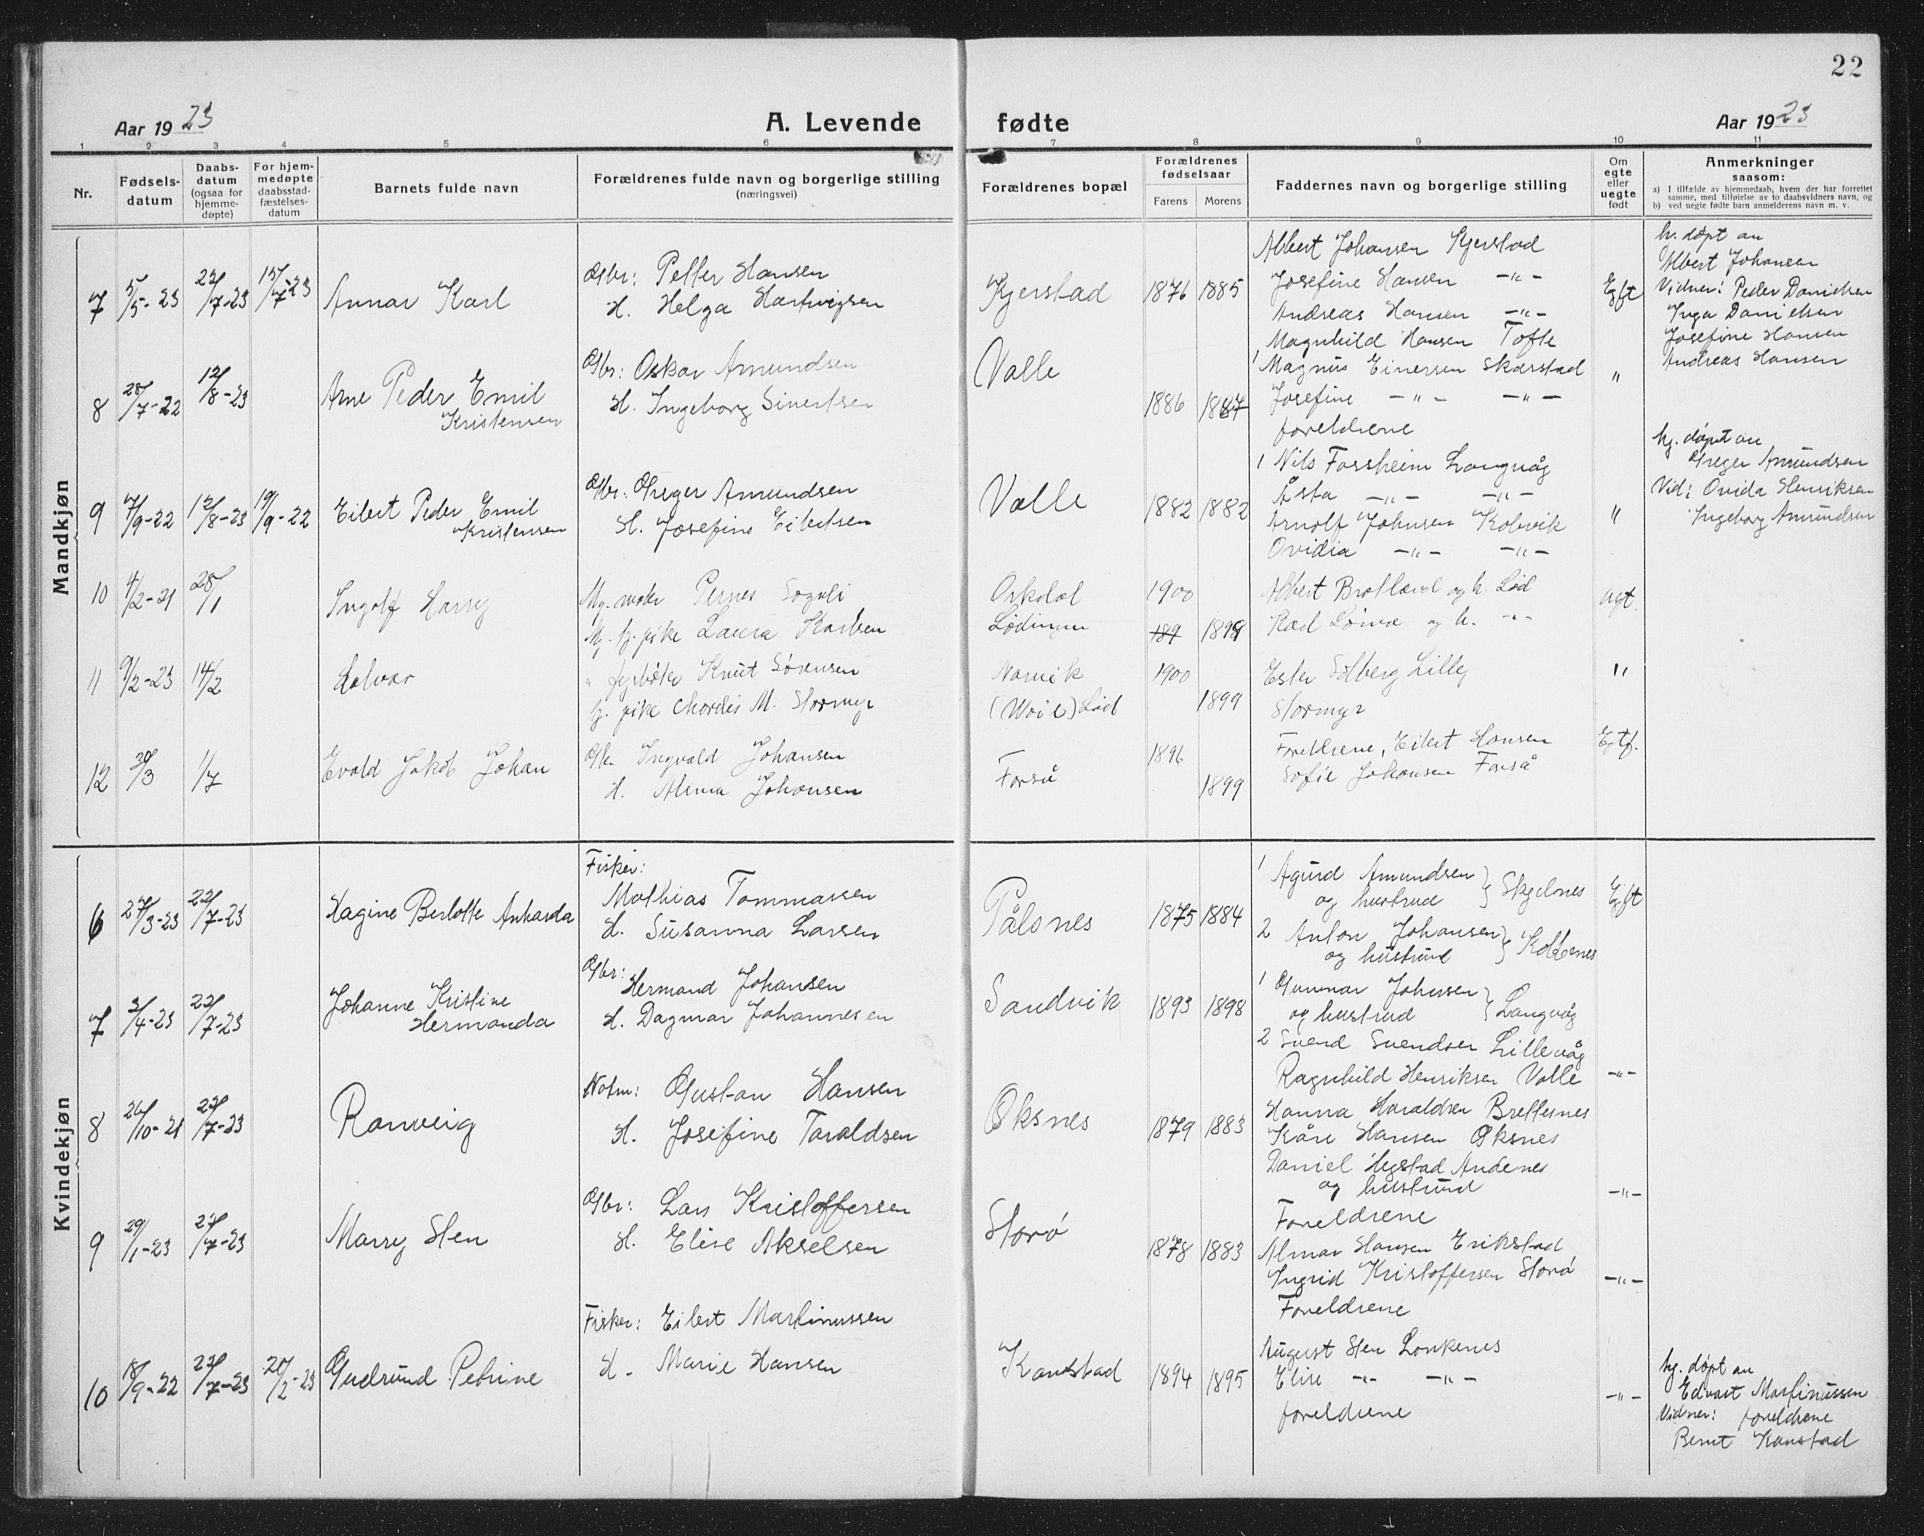 22
Aar 1923
A. Levende fødte
Aar 1923
1 2 3 4 5 6 7 8 9 10 11
Nr.
Fødsels-
datum
Daabs-
datum
(ogsaa for
hjemme-
døpte)
For hjem-
medøpte
daabsstad-
fæstelses-
datum
Barnets fulde navn
Forældrenes fulde navn og borgerlige stilling
(næringsvei)
Forældrenes bopæl
Forældrenes
fødselsaar
Farens
Morens
Faddernes navn og borgerlige stilling
Om
egte
eller
uegte
født
Anmerkninger
saasom:
a) I tilfælde av hjemmedaab, hvem der har forrettet
samme, med tilføielse av to daabsvidners navn, og
b) ved uegte fødte barn anmelderens navn m. v.
Mandkjøn
7 5/5-23 22/7-23 15/7-23
Annar Karl
Gbr: Petter Hansen
H. Helga Hartvigsen
Kjerstad
1876 1885
Albert Johansen Kjerstad
Josefine Hansen -"-
Andreas Hansen -"-
Magnhild Hansen Tofte
Egt
hj. døpt av
Albert Johansen
Vidner: Peder Danielsen
Inga Danielsen
Josefine Hansen
Andreas Hansen
8 28/7-22 12/8-23
Arne Peder Emil
Kristensen
Gbr: Oskar Amundsen
H. Ingeborg Sivertsen
Valle
1886 1887
1 Magnus Einersen Skarstad
Josefine -"- -"-
foreldrene
"
9 7/9-22 12/8-23 19/9-22
Eilert Peder Emil
Kristensen
Gbr: Greger Amundsen
H. Josefine Eilertsen
Valle
1882 1882
1 Nils Forsheim Langvåg
Åsta -"- -"-
Arnolf Johnsen Kobvik
Ovidia -"- -"-
"
hj. døpt av
Greger Amundsen
Vid: Ovida Henriksen
Ingeborg Amundsen
10 4/2-21 28/1
Ingolf Harry
Ug. Pernes
Ug. tj. pike Laura Karlsen
Orkdal
Lødingen
1900
189 1899
Albert Bratland og h. Lød
og h. -"-
ugt.
11 9/2-23 14/2
" fyrbøter Knut Sørensen
tj. pike Hordis M. Stormyr
Narvik
Lød
1900
1899
Ester Solberg Lilly
Stormyr
"
12 30/3 1/7
Evald Jakob Johan
Gbr Ingvald Johansen
H. Alma Johansen
Forså
1896
1899
Foreldrene, Eilert Hansen
Sofie Johansen Forså
Egtf.
Kvindekjøn
6 27/3-23 22/7-23
Hagine Berlotte Anharda
Fisker:
Mathias Tommassen
H. Susanna Larsen
Pålsnes
1875 1884
1 Agurd Amundsen
og hustrud } Skjelnes
2 Anton Johansen
og hustrud } Kobbenes
Egt
7 3/4-23 22/7-23
Johanne Kristine
Hermanda
Gbr:
Hermand Johansen
H. Dagmar Johannesen
Sandvik
1893 1898
1 Gunnar Johnsen
og hustrud } Langvåg
2 Svend Svendsen Lillevåg
Ragnhild Henriksen Valle
-"-
8 26/10-21 22/7-23
Ranveig
Notm: Gustav Hansen
H. Josefine Taraldsen
Øksnes
1879 1883
Hanna Haraldsen Brettesnes
Kåre Hansen Øksnes
Daniel Hegstad Andenes
og hustrud
Foreldrene
-"-
9 29/1-23 22/7-23
Marry Sten
Gbr: Lars Kristoffersen
H. Elise Akselsen
Storø
1878 1883
Almar Hansen Erikstad
Ingrid Kristoffersen Storø
Foreldrene
-"-
10 18/9-22 22/7-23 20/2-23
Gudrund Petrine
Fisker: Eilert Martinussen
H. Marie Hansen
Kanstad
1894 1895
August Sten Lonkenes
Elise -"- -"-
foreldrene
-"-
hj. døpt av
Edvart Martinussen
Vidner: foreldrene
Bernt Kanstad